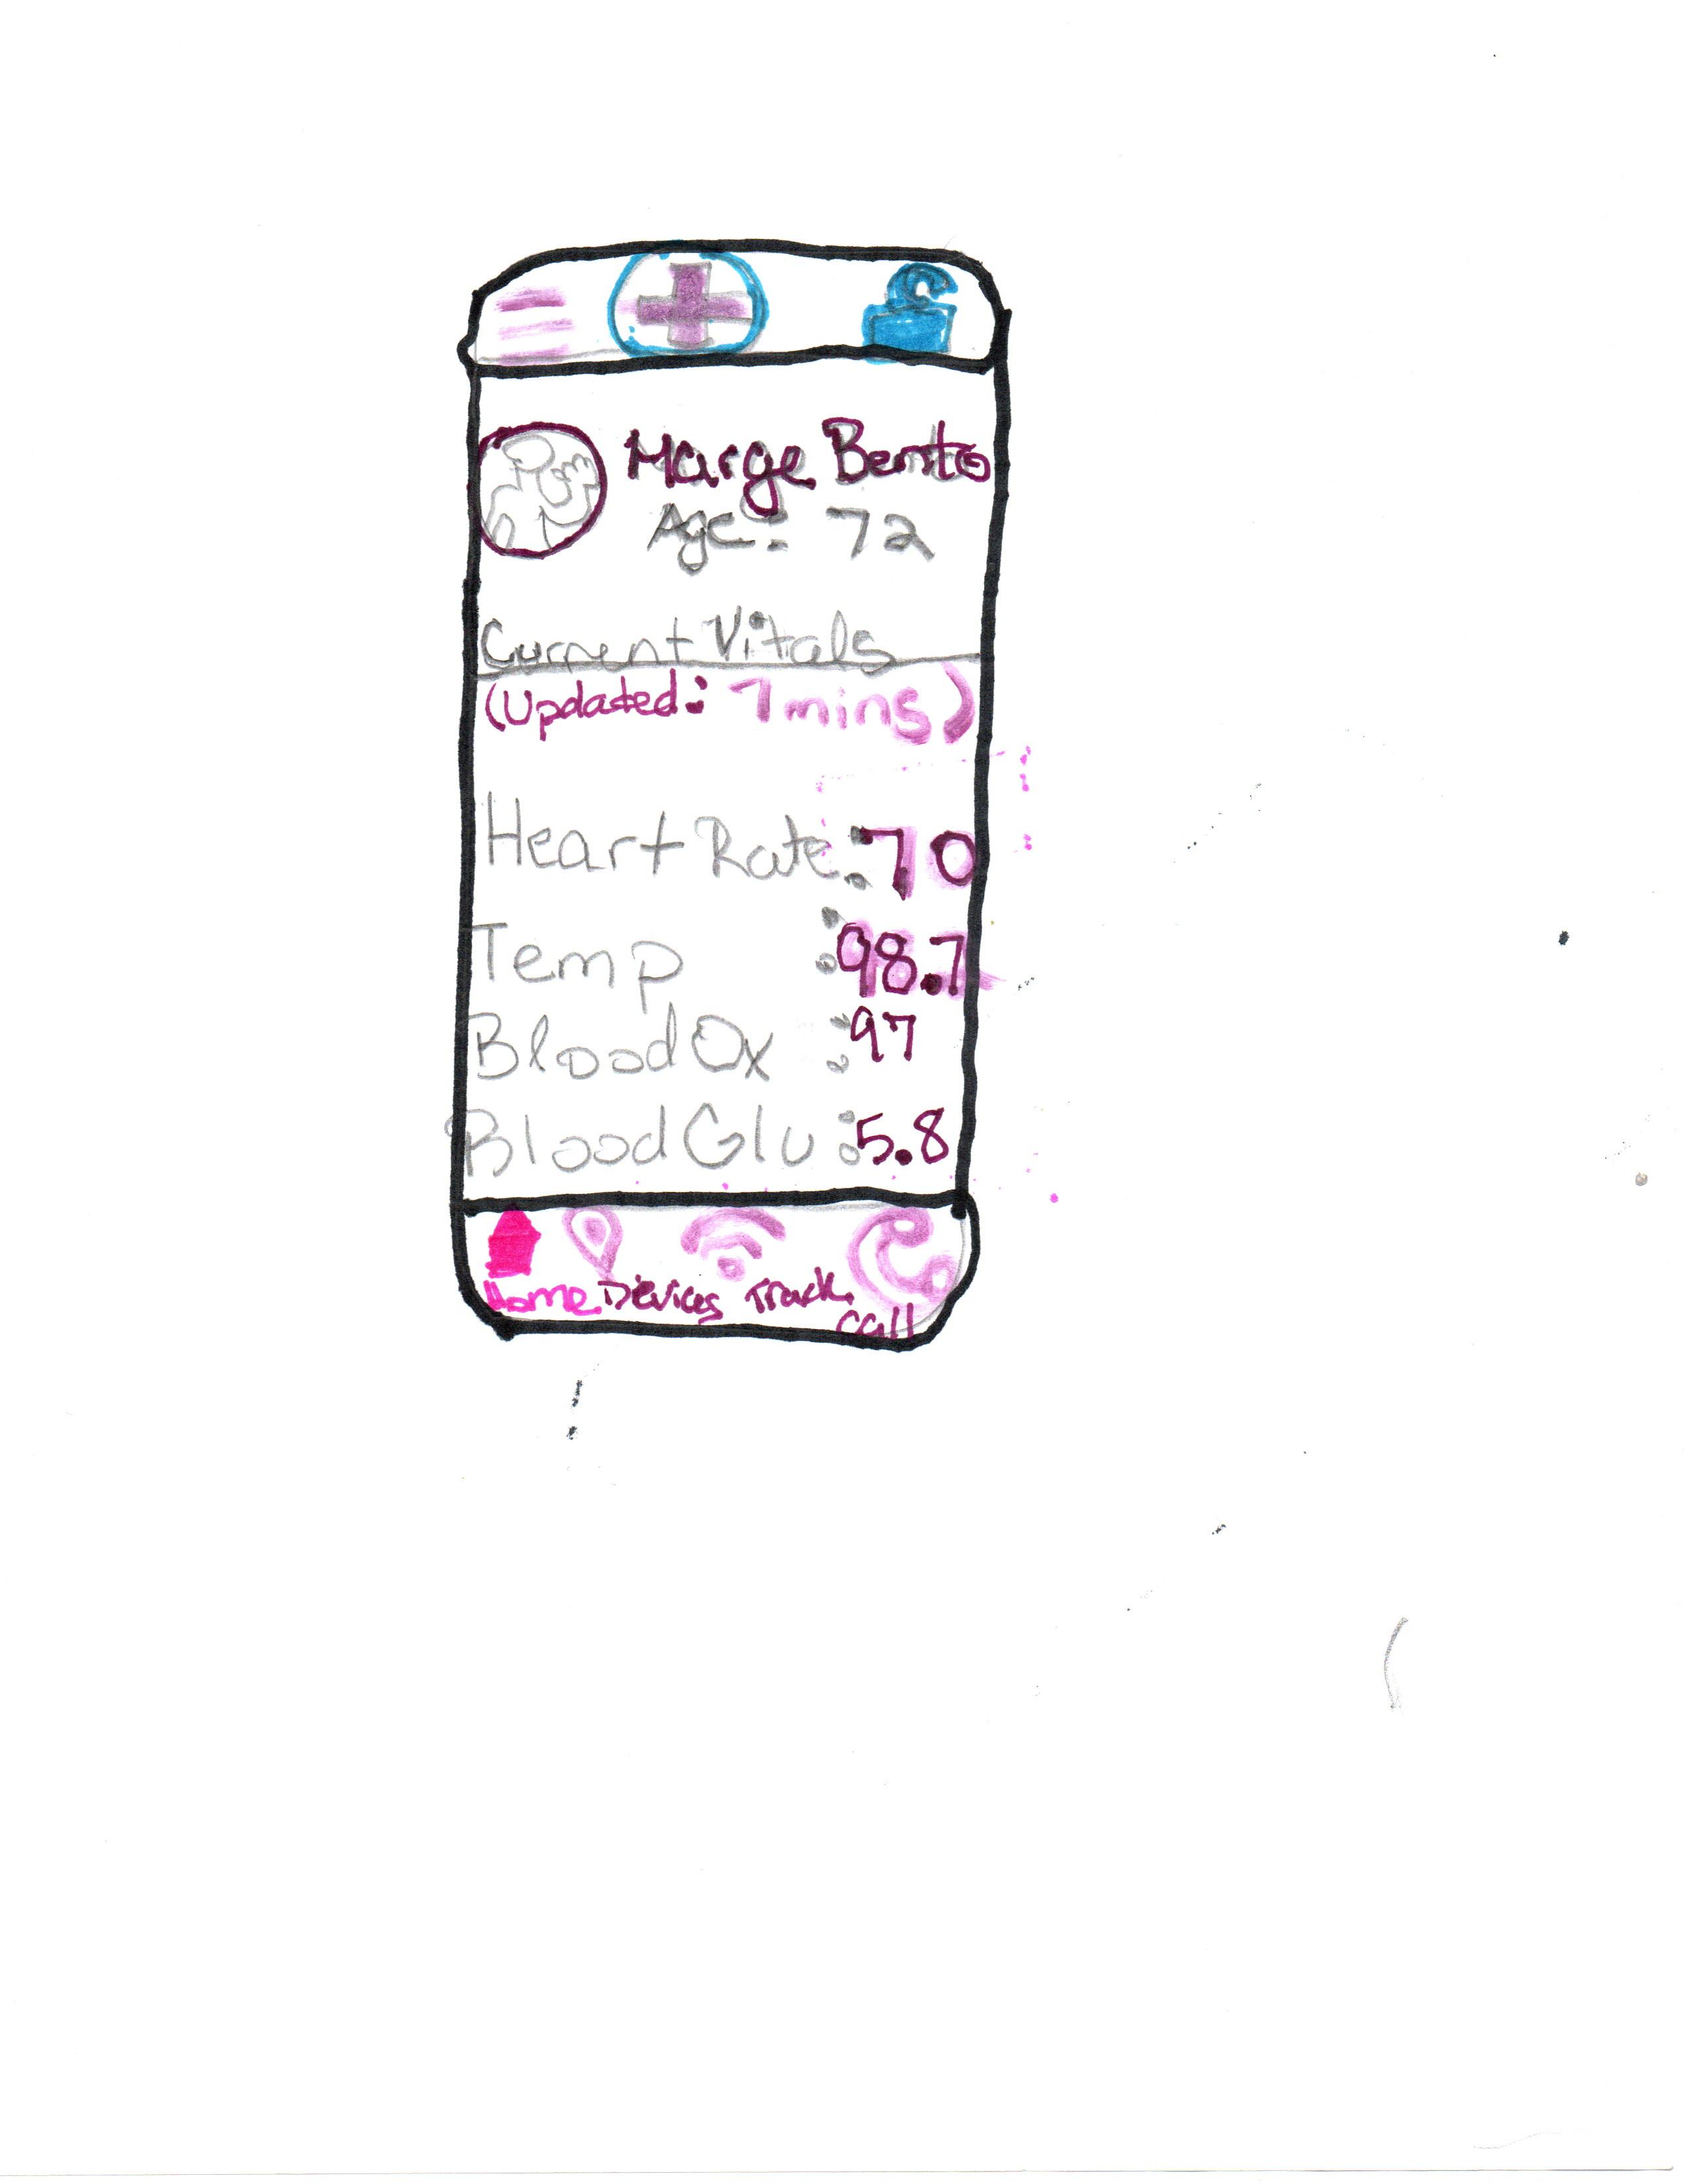 Marge Bento
Age: 72
Current Vitals
(Updated: 7mins)
Heart Rate: 70
Temp : 98.7
Blood Ox : 97
Blood Glu : 5.8
Home Devices Track Call